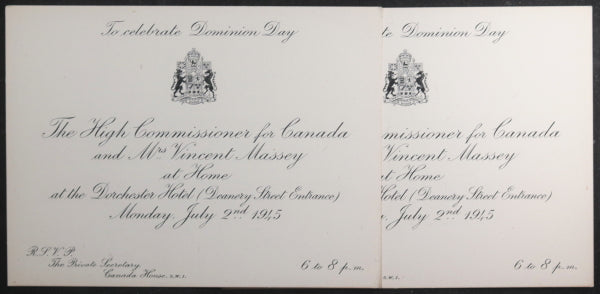 To celebrate Dominion Day
The High Commissioner for Canada
and Mrs Vincent Massey
at Home
at the Dorchester Hotel (Deanery Street Entrance)
Monday, July 2nd 1945
R.S.V.P.
The Private Secretary,
Canada House. S.W.1.
6 to 8 p.m.
Dominion Day
missioner for Canada
Vincent Massey
at Home
Hotel (Deanery Street Entrance)
July 2nd 1945
S.W.1.
6 to 8 p.m.